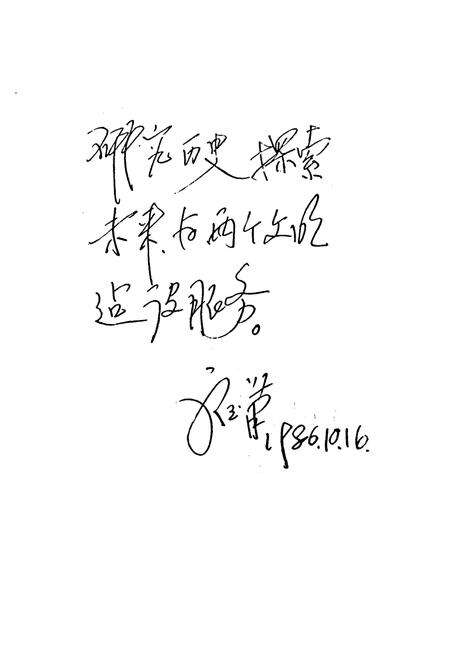 研究历史 探索
未来,为两个文明
建设服务。
1986.10.16.